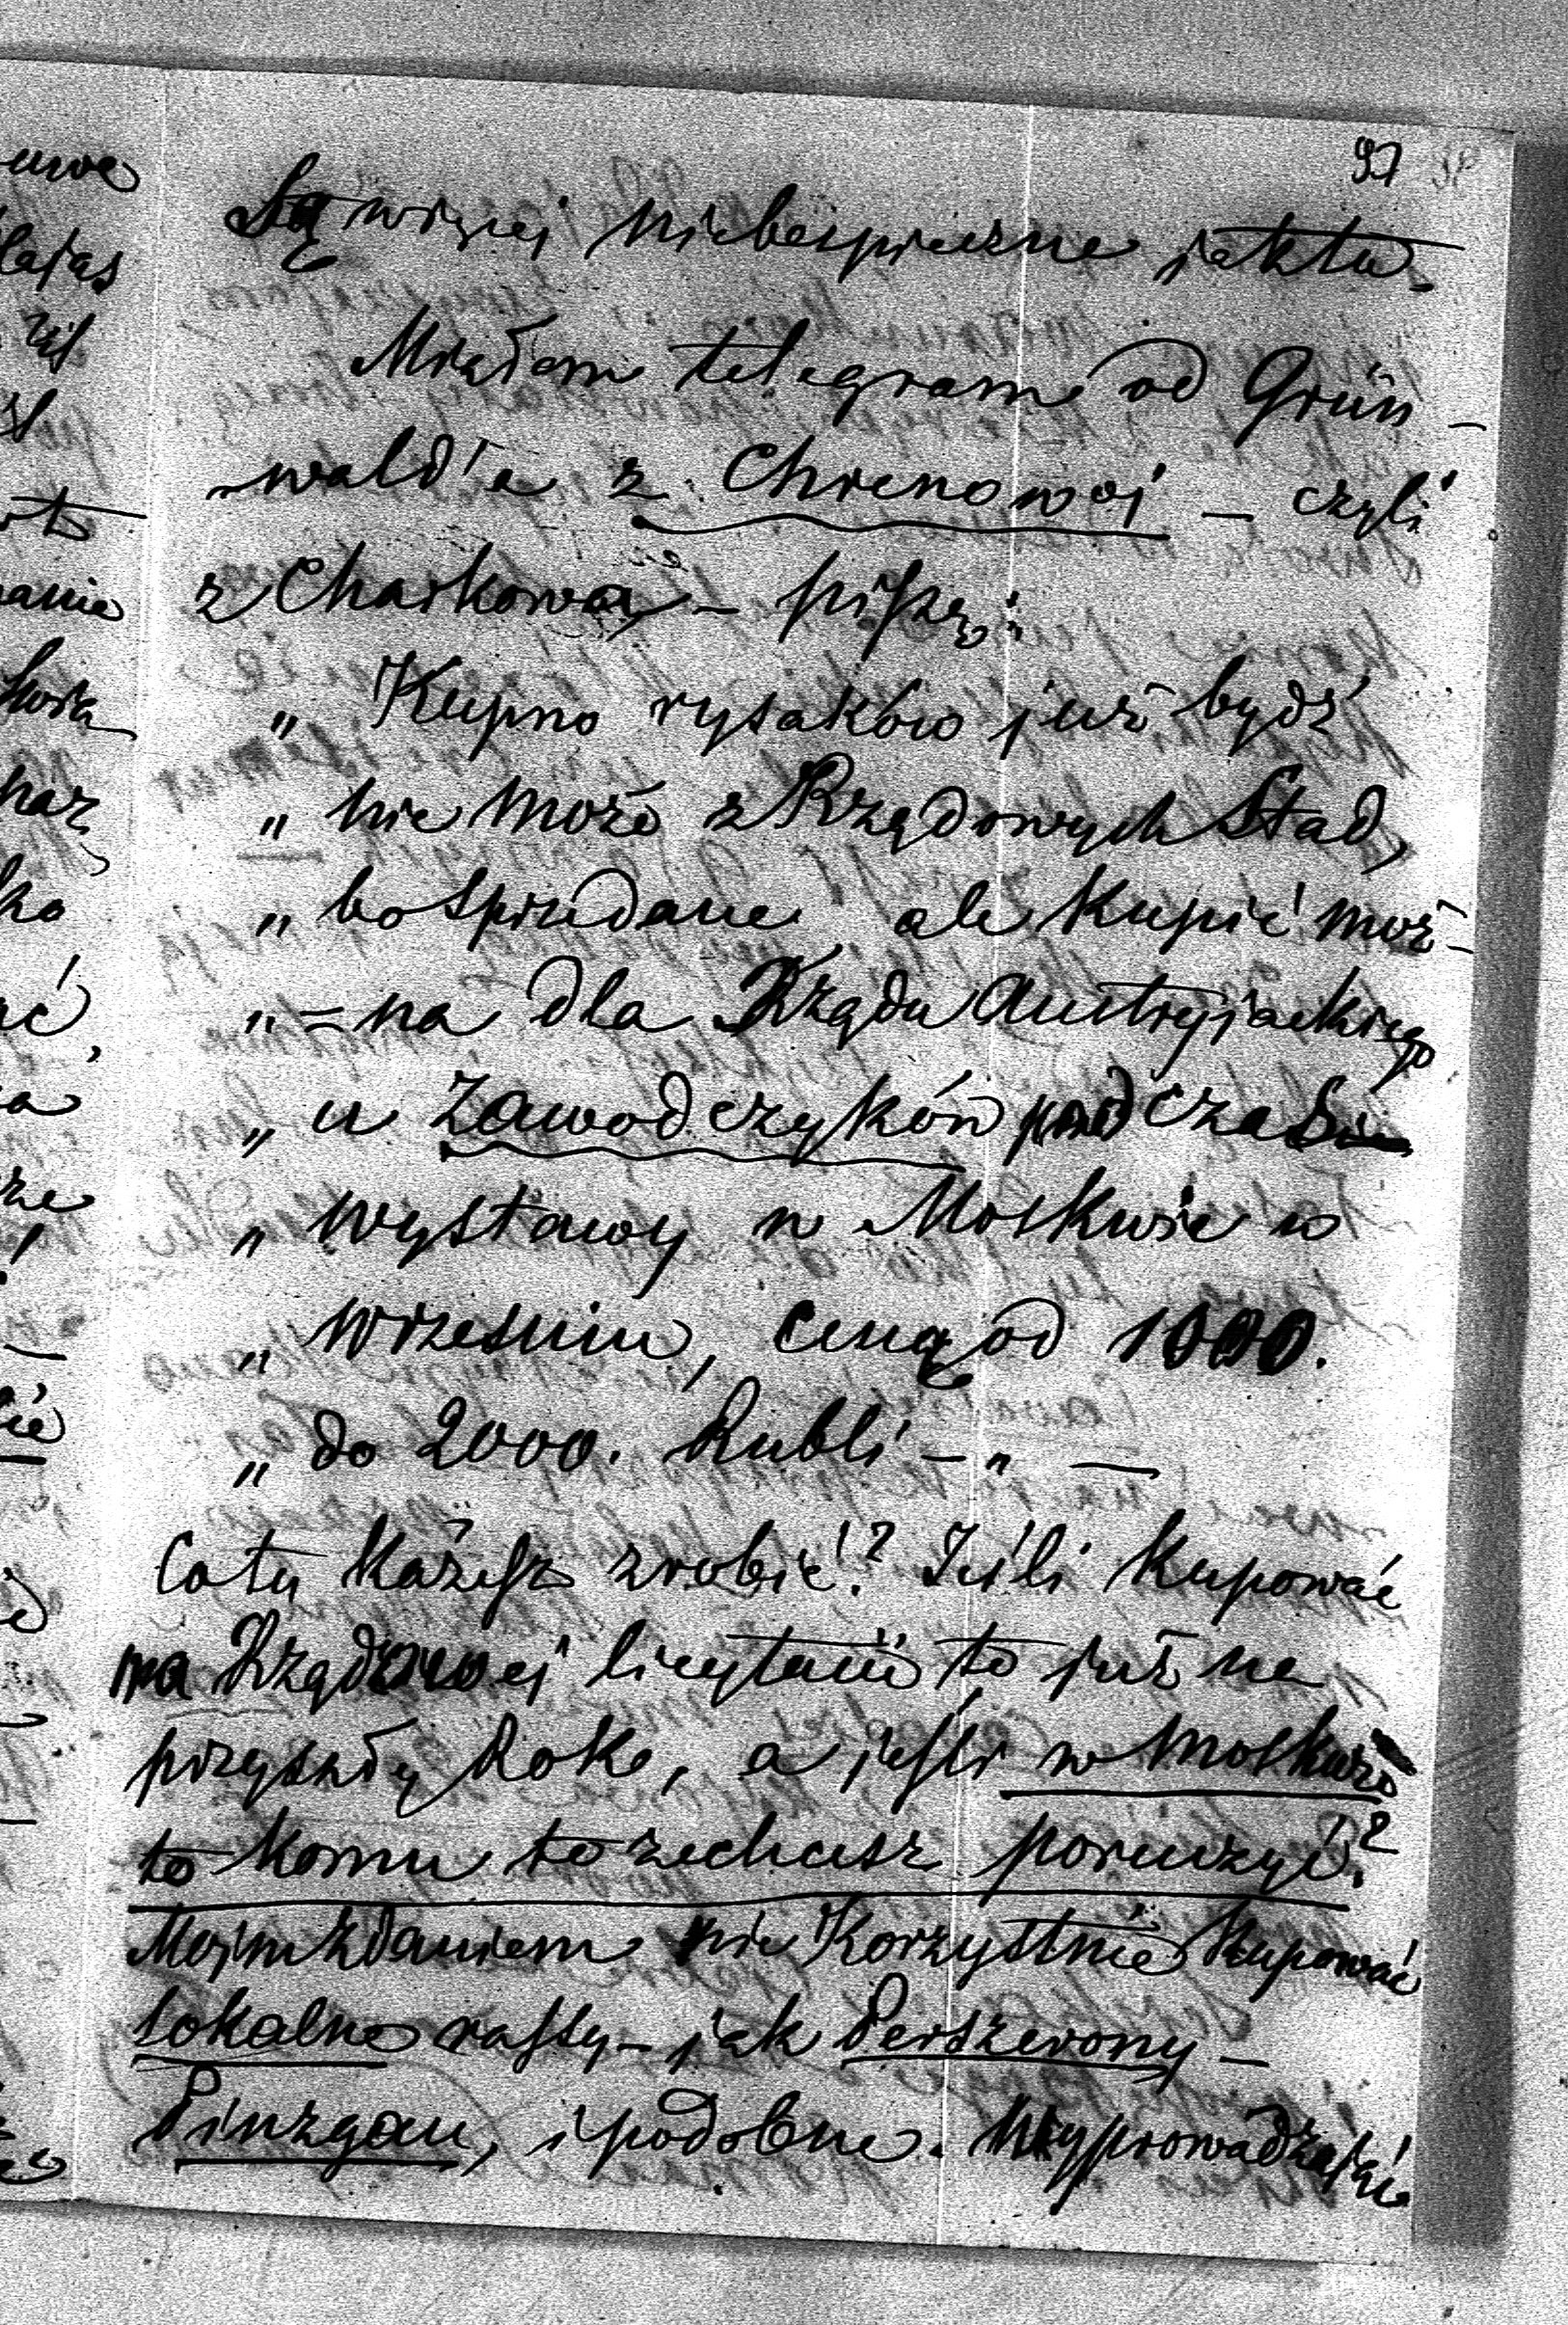 97
Są więcej niebezpieczne jak tu.
Miałem telegram od Grün-
wald'a z Chrenowoj – czyli
z Charkowa – piszę:
„ Kupno rysaków już bydź
„ nie może z Rządowych Stad,
„ bo sprzedane, ale kupić moż-
„ -na dla Rządu Austryjackiego
„ u zawodczyków podczas
„ wystawy w Moskwie w
„ wrzesniu, ceną od 1000.
„ do 2000. Rubli – „ —
Co ty każesz zrobić? Jeśli kupować
na Rządowej licytacii to już na
przyszły Rok, a jeśli w Moskwie
to komu to zechcesz poruczyć?
Mojim zdaniem nie korzystnie kupować
lokalne rassy – jak Perszerony –
Pinzgau, i podobne. Wyprowadzając